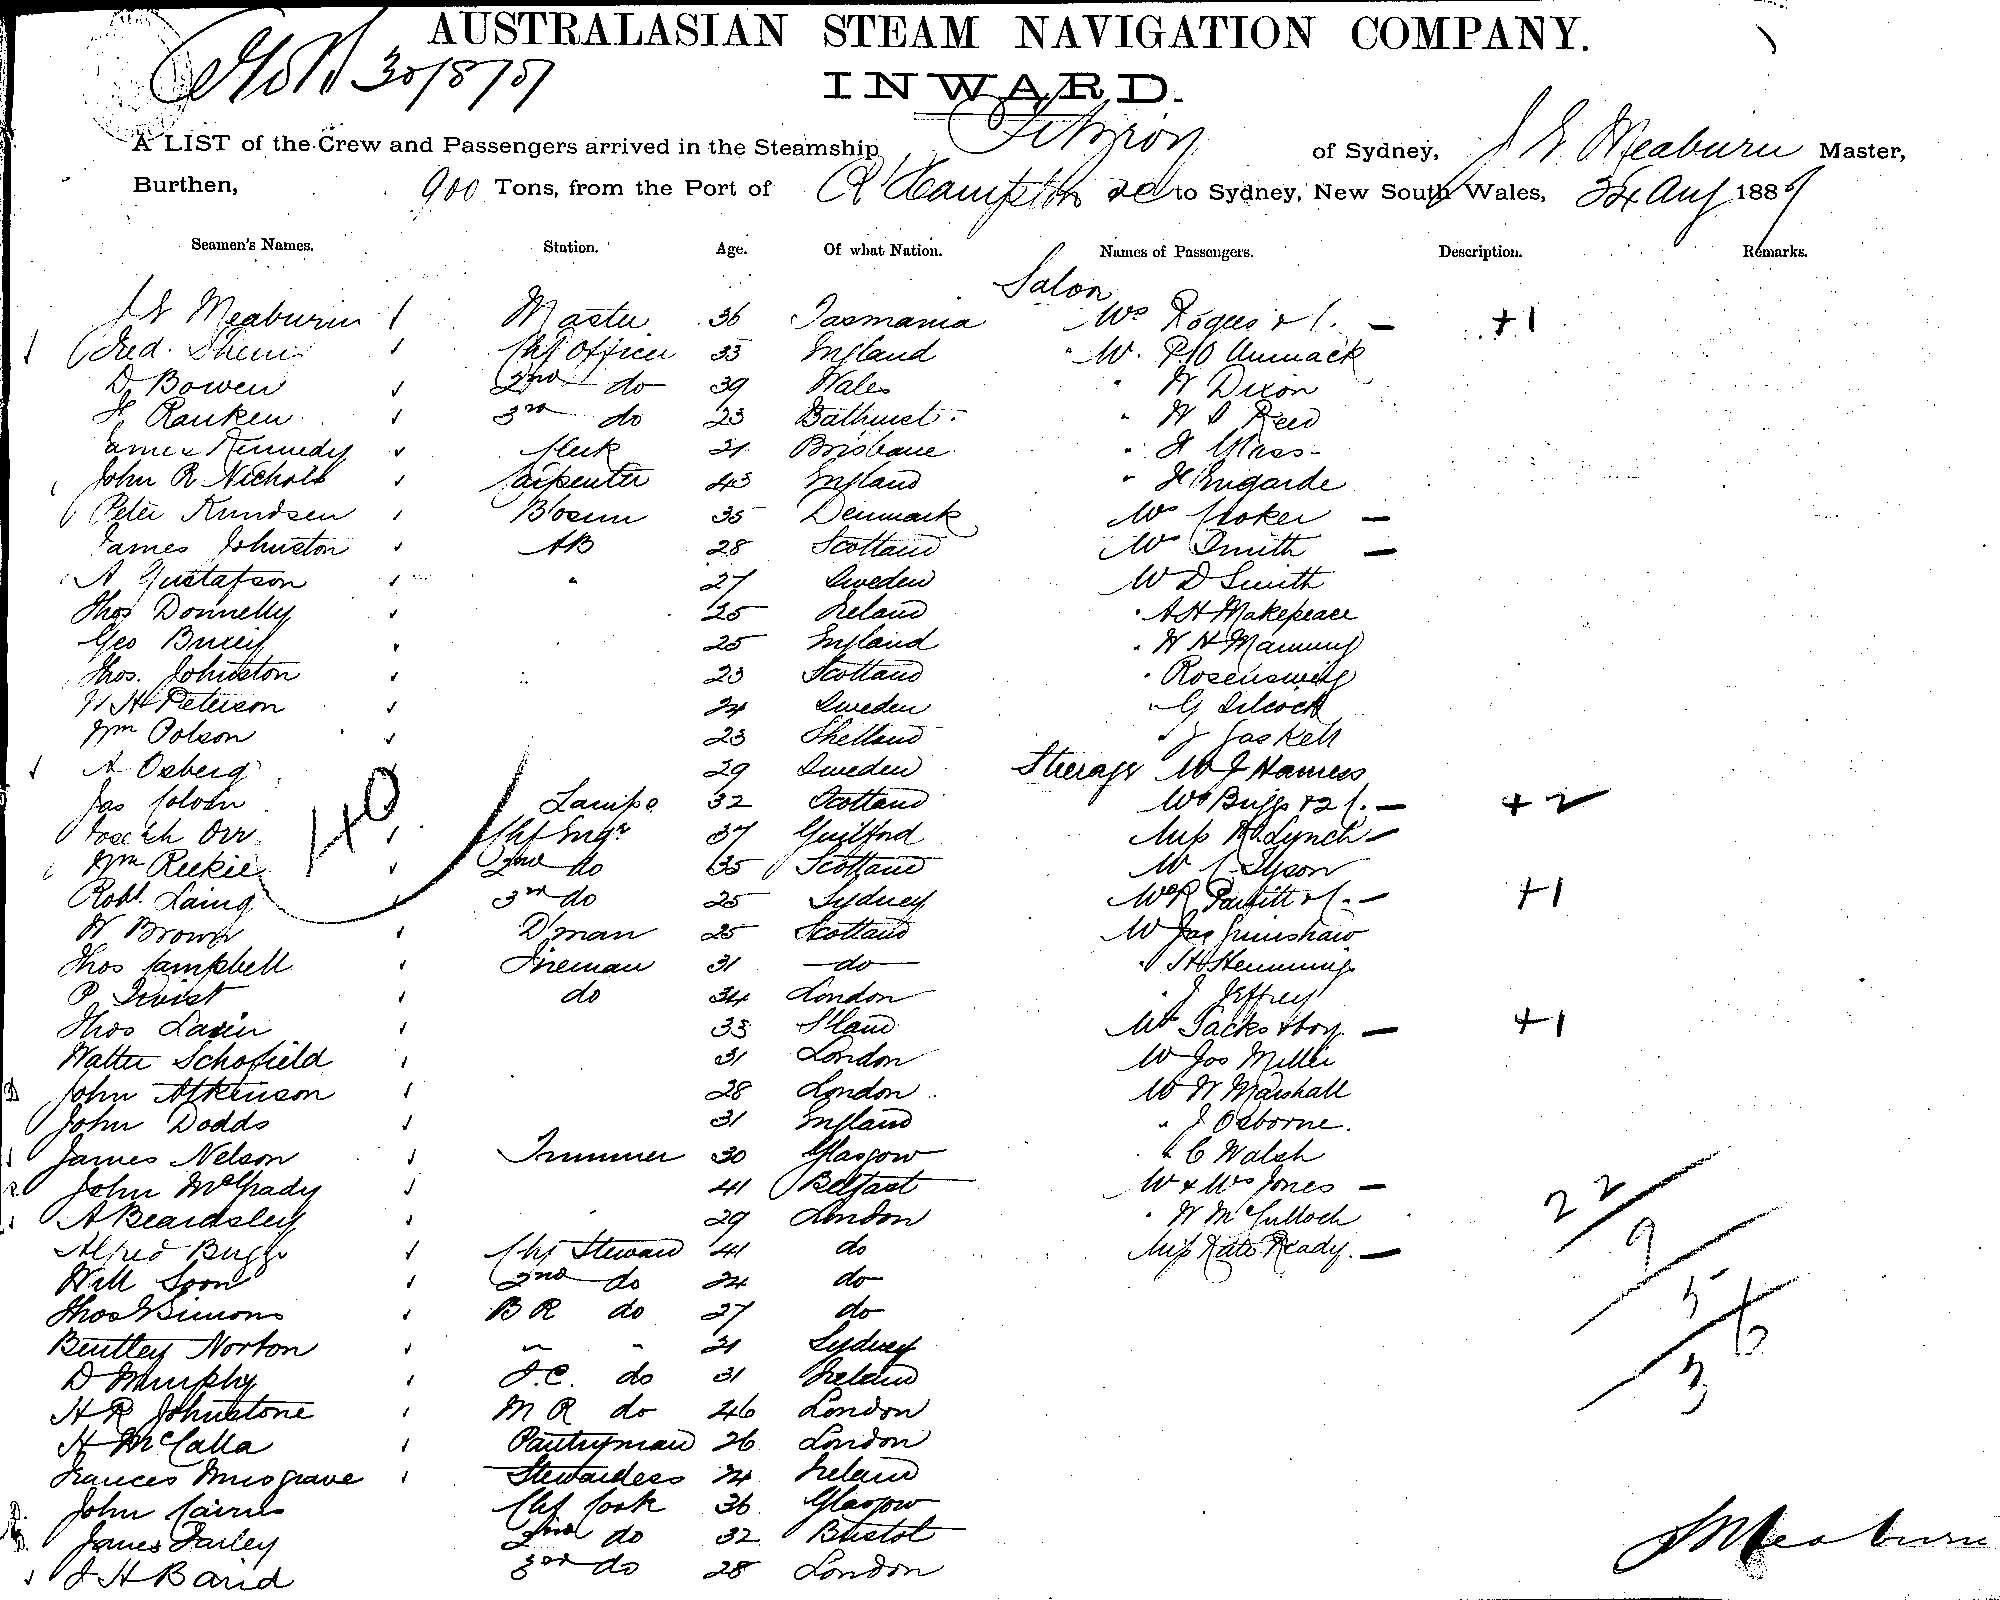 AUSTRALASIAN STEAM NAVIGATION COMPANY.
INWARD.
A LIST of the Crew and Passengers arrived in the Steamship Fitzroy of Sydney, J G Meaburn Master,
Burthen, 900 Tons, from the Port of R'Hampton &c to Sydney, New South Wales, Aug 188
Seamen's Names. Station. Age. Of what Nation. Names of Passengers. Description. Remarks.
Saloon
Meaburn Master 36 Tasmania Mrs Rogers & C. — +1
Fred. Chf Officer 33 England
D. Bowen 2nd do 39 Wales W Dixon
Ranken 3rd do 23 Bathurst W Reed
James Kennedy Clerk 21 Brisbane Glass
John R Nicholls Carpenter 43 England
Peter Knudsen Bosun 35 Denmark Mrs Croker —
James Johnston AB 28 Scotland Mrs Smith —
A Gustafson " 27 Sweden Mr D Smith
Thos Donnelly 25 Ireland " A H Makepeace
Geo 25 England " W H Manning
Thos. Johnston 23 Scotland " Rosensweig
H Peterson 24 Sweden " G Silcock
Wm Polson 23 Shetland " J Gaskell
A Osberg 29 Sweden Steerage Mr J Harness
Jas Colvin Lamps 32 Scotland Mrs Briggs & 2 C. — +2
Joseph Orr Chf Engr 37 Guilford Miss Lynch —
Wm Reekie 2nd do 35 Scotland Mr C Tyson
Robt. Laing 3rd do 25 Sydney Mrs R Parfitt & C. — +1
W Brown D'man 25 Scotland Mr Jas Grimshaw
Thos Campbell Fireman 31 do " Hemmings
P Twist do 34 London " J Jeffrey
Thos 33 Mrs Sacks & boy — +1
Walter Schofield 31 London Mr Jos Miller
John Atkinson 28 London Mr W Marshall
John Dodds 31 England " J Osborne.
James Nelson Trimmer 30 Glasgow " C Walsh
John McGrady 41 Belfast Mr & Mrs Jones —
A Beardsley 29 London " W McCulloch
Alfred Chf Steward 41 do Miss Kate Ready. —
Will Soon 2nd do 24 do
Thos Simons B R do 27 do
Bentley Norton " " 21 Sydney
D Murphy F.C. do 31 Ireland
H R Johnstone M R do 46 London
H McCalla Pantryman 26 London
Frances Musgrave Stewardess 24 Ireland
John Cairns Chf Cook 36 Glasgow
James Farley 2nd do 32 Bristol
J H Baird 3rd do 28 London
40
22
9
5
6
3
J Meaburn